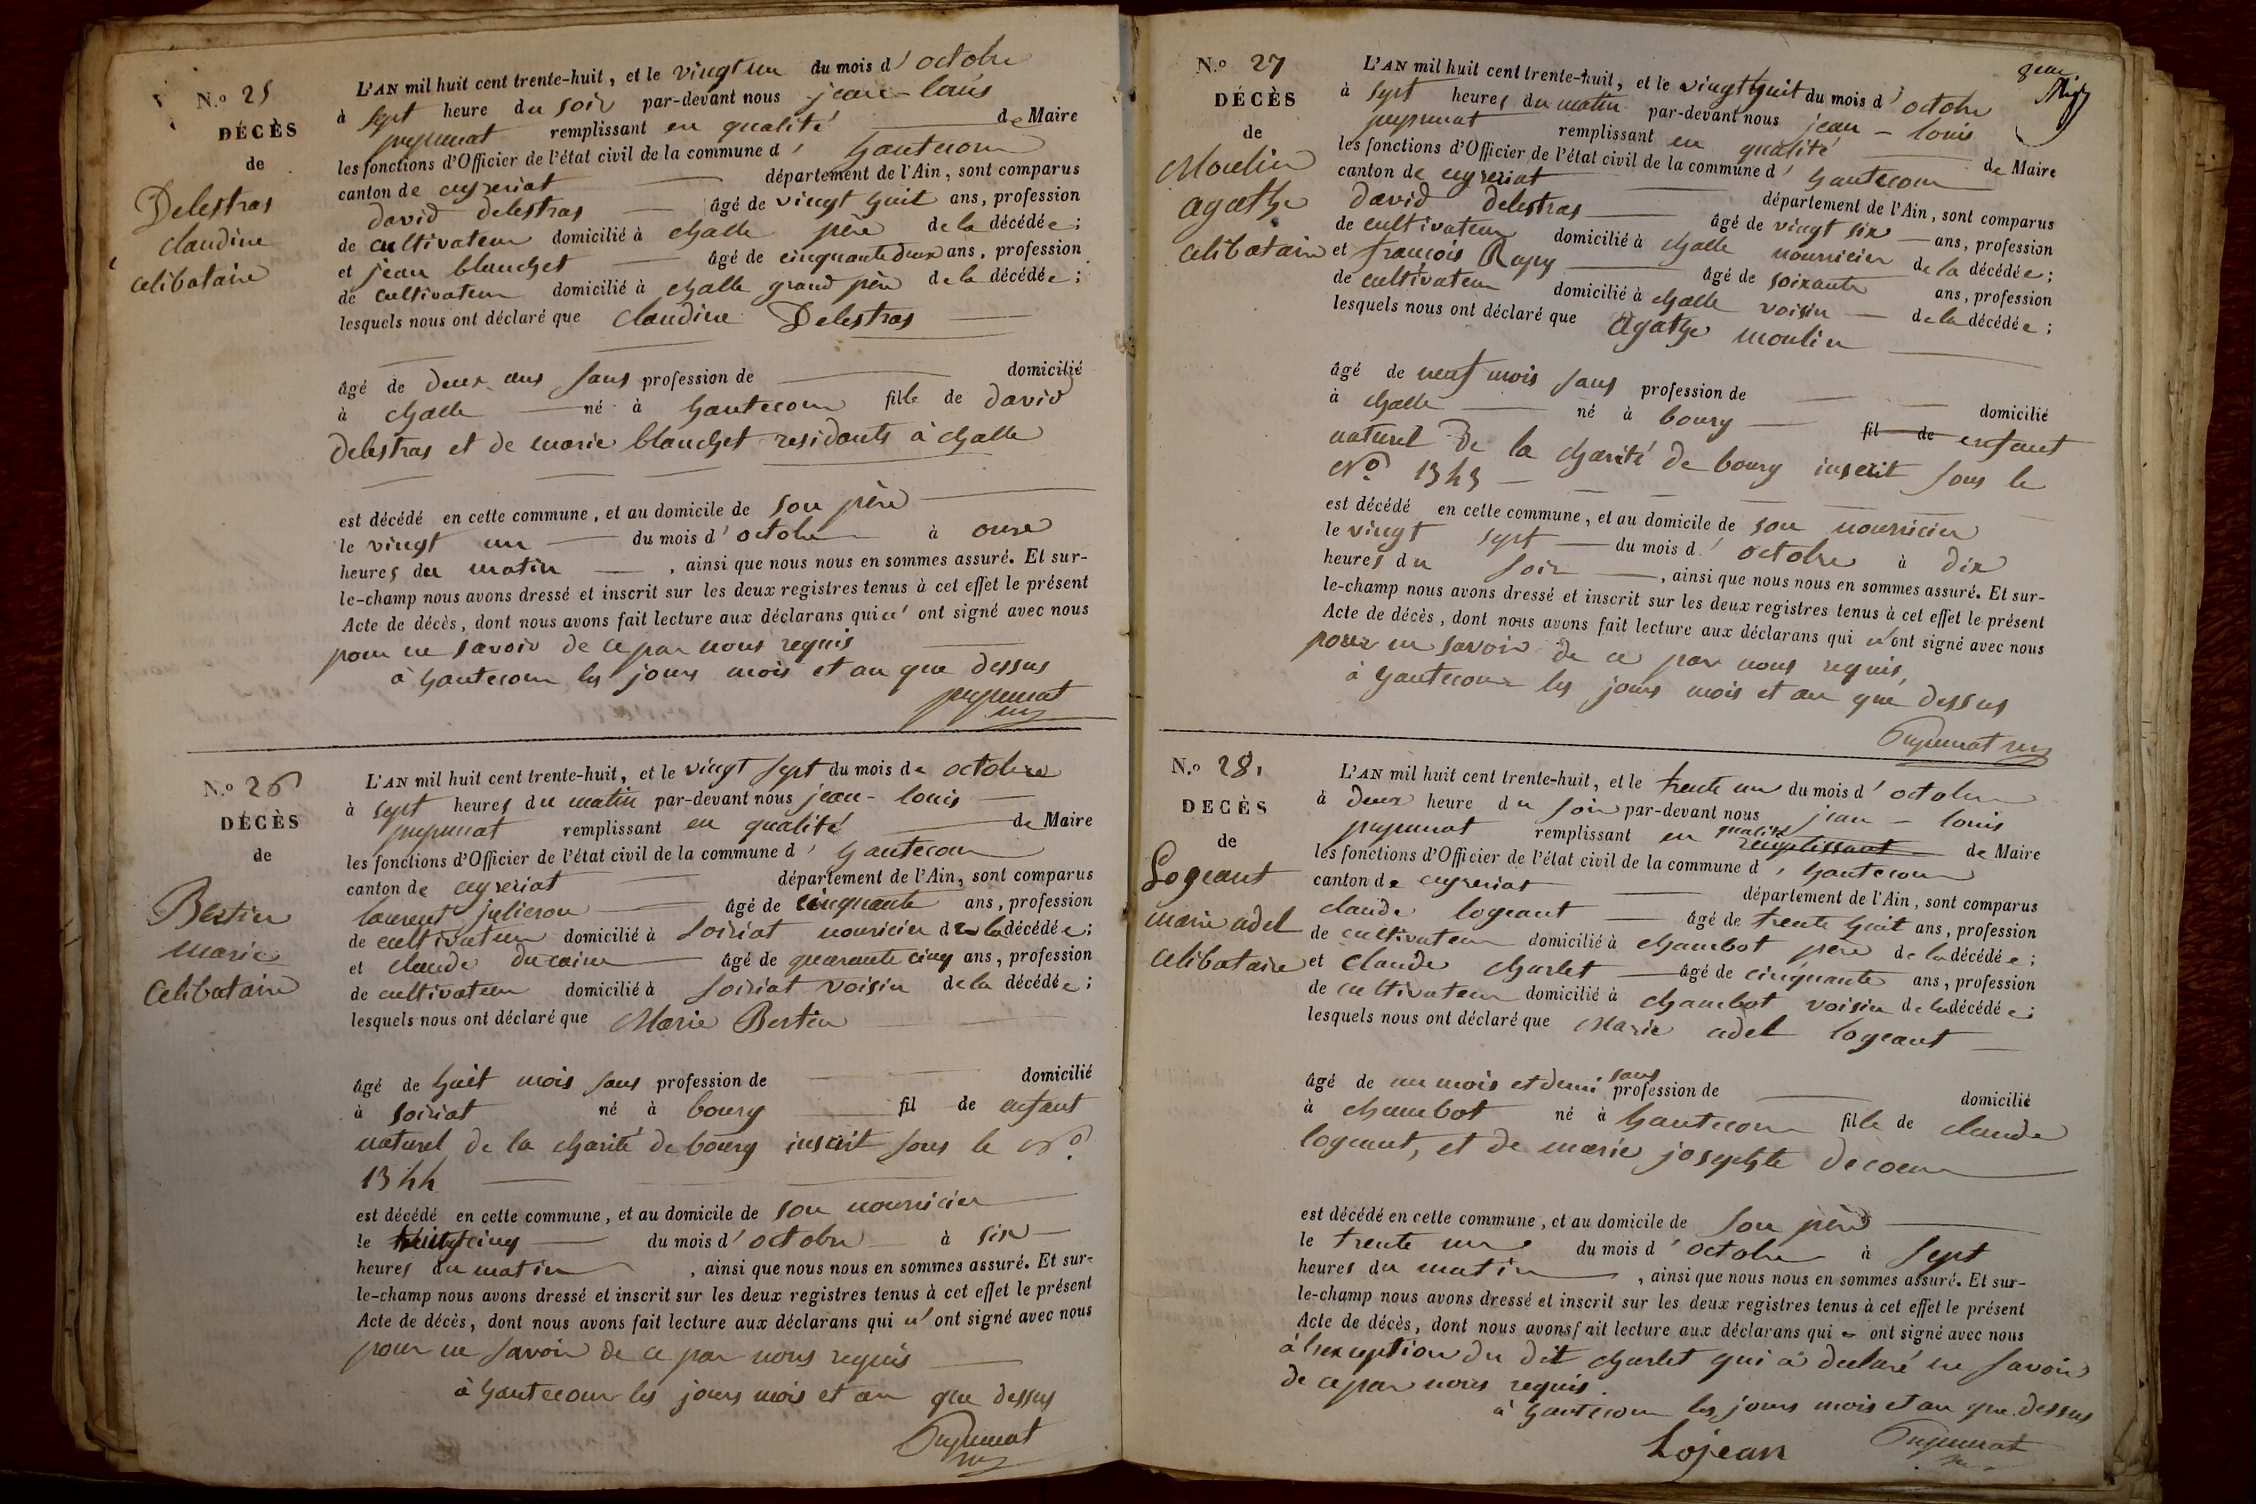 N.o 25
DÉCÈS
de
Delestras
claudine
celibataire
L'AN mil huit cent trente-huit, et le vingt un du mois d' octobre
à sept heure du soir par-devant nous jean-louis
puyunat remplissant en qualité de Maire
les fonctions d'Officier de l'état civil de la commune d' hautecour
canton de ceyzeriat département de l'Ain, sont comparus
david delestras âgé de vingt huit ans, profession
de cultivateur domicilié à challe père de la décédée;
et jean blanchet âgé de cinquante deux ans, profession
de cultivateur domicilié à challe grand père de la décédée;
lesquels nous ont déclaré que claudine Delestras
âgé de deux ans sans profession de domicilié
à challe né à hautecour fille de david
delestras et de marie blanchet residants à challe
est décédé en cette commune, et au domicile de son père
le vingt un du mois d' octobre à onze
heures du matin, ainsi que nous nous en sommes assuré. Et sur-
le-champ nous avons dressé et inscrit sur les deux registres tenus à cet effet le présent
Acte de décès, dont nous avons fait lecture aux déclarans qui n' ont signé avec nous
pour ne savoir de ce par nous requis
à hautecour les jours mois et an que dessus
puyunat
N.o 26
DÉCÈS
de
Bertin
Marie
Celibataire
L'AN mil huit cent trente-huit, et le vingt sept du mois de octobre
à sept heures du matin par-devant nous jean-louis
puyunat remplissant en qualité de Maire
les fonctions d'Officier de l'état civil de la commune d' hautecour
canton de ceyzeriat département de l'Ain, sont comparus
laurent julieron âgé de cinquante ans, profession
de cultivateur domicilié à soiriat nouricier de la décédée;
et claude ducaine âgé de quarante cinq ans, profession
de cultivateur domicilié à soiriat voisin de la décédée;
lesquels nous ont déclaré que Marie Bertin
âgé de huit mois sans profession de domicilié
à soiriat né à bourg fil de enfant
naturel de la charité de bourg inscrit sous le No.
1344
est décédé en cette commune, et au domicile de son nourricier
le vingt cinq du mois d' octobre à six
heures du matin, ainsi que nous nous en sommes assuré. Et sur-
le-champ nous avons dressé et inscrit sur les deux registres tenus à cet effet le présent
Acte de décès, dont nous avons fait lecture aux déclarans qui n' ont signé avec nous
pour ne savoir de ce par nous requis
à hautecour les jours mois et an que dessus
Puyunat
N.o 27
DÉCÈS
de
Moulin
agathe
celibataire
L'AN mil huit cent trente-huit, et le vingt huit du mois d' octobre
à sept heures du matin par-devant nous jean-louis
puyunat remplissant en qualité de Maire
les fonctions d'Officier de l'état civil de la commune d' hautecour
canton de ceyzeriat département de l'Ain, sont comparus
david delestras âgé de vingt six ans, profession
de cultivateur domicilié à challe nourricier de la décédée;
et françois Rapy âgé de soixante ans, profession
de cultivateur domicilié à challe voisin de la décédée;
lesquels nous ont déclaré que Agathe moulin
âgé de neuf mois sans profession de domicilié
à challe né à bourg fil de enfant
naturel de la charité de bourg inscrit sous le
No. 1343
est décédé en cette commune, et au domicile de son nourricier
le vingt sept du mois d' octobre à dix
heures du soir, ainsi que nous nous en sommes assuré. Et sur-
le-champ nous avons dressé et inscrit sur les deux registres tenus à cet effet le présent
Acte de décès, dont nous avons fait lecture aux déclarans qui n' ont signé avec nous
pour ne savoir de ce par nous requis,
à hautecour les jours mois et an que dessus
Puyunat
N.o 28
DECÈS
de
Logeant
marie adel
celibataire
L'AN mil huit cent trente-huit, et le trente un du mois d' octobre
à deux heure du soir par-devant nous jean-louis
puyunat remplissant en qualité remplissant de Maire
les fonctions d'Officier de l'état civil de la commune d' hautecour
canton de ceyzeriat département de l'Ain, sont comparus
claude logeant âgé de trente huit ans, profession
de cultivateur domicilié à chambot père de la décédée;
et claude charlet âgé de cinquante ans, profession
de cultivateur domicilié à chambot voisin de la décédée;
lesquels nous ont déclaré que Marie adel logeant
âgé de un mois et demi sans profession de domicilié
à chambot né à hautecour fille de claude
logeant, et de marie josephte decoeur
est décédé en cette commune, et au domicile de son père
le trente un du mois d' octobre à sept
heures du matin, ainsi que nous nous en sommes assuré. Et sur-
le-champ nous avons dressé et inscrit sur les deux registres tenus à cet effet le présent
Acte de décès, dont nous avons fait lecture aux déclarans qui ont signé avec nous
à l'exception du dit charlet qui a declaré ne savoir
de ce par nous requis.
à hautecour les jours mois et an que dessus
Lojean Puyunat